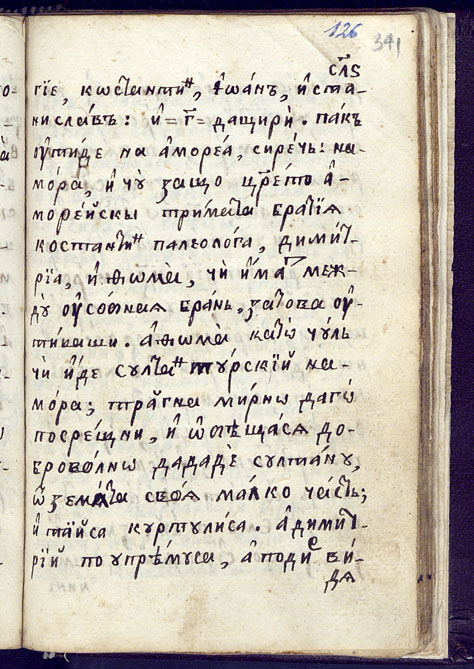 126
341
сл҃ѕ
гїе, костанти н, їѡа́нъ, и҆ ста-
нисла́въ: и҆ = г҃ = дащирѝ. па́къ
ѹ҆тиде на аморе́а, сире́чь: на
мо́ра, и҆ чꙋ̀ защо цр҃ето а-
море́йскы тримата братїѧ
костанти н палеоло́га, дими́т-
рїа, и҆ ѳѡма̀, чѝ и҆́ма меж-
дꙋ ѹ҆собнаѧ бра́нь, затова ѹ҆-
тиваши. а҆ ѳѡма̀ като̀ чꙋ́ль
чи и҆́де султа н тꙋ́рскїй на-
мо́ра; тра́гна ми́рнѡ да гѡ
посре́щни, и҆ ѡ҆бѣща́сѧ до-
брово́лнѡ дададѐ султа́нꙋ,
ѿ земѧта своѧ ма́лко ча́сть;
и҆ та́йса куртули́са. а҆ дими́т-
рїй по упрѣ́муса, а҆ поди́ с ви́-
дѧ